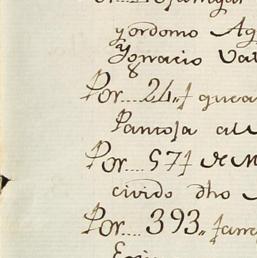 yordomo Ag
Ygnacio Val
Por.... 24„ f quea
Pantoja al
Por.... 57 f de M
civido dho
Por.... 393„ fan